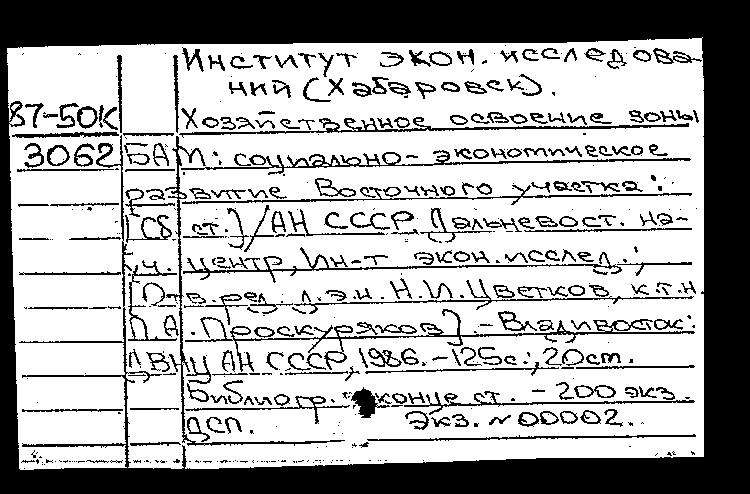 Институт экон. исследова-
ний (Хабаровск).
87-50К Хозяйственное освоение зоны
3062 БАМ: социально-экономическое
развитие Восточного участка:
[Сб. ст.]/АН СССР. Дальневост. на-
уч. центр, Ин-т экон. исслед.;
[Отв. ред. д.э.н. Н.И. Цветков, к.т.н.
П.А. Проскуряков]. - Владивосток:
ДВНЦ АН СССР, 1986. - 125с.; 20см.
Библиогр. в конце ст. - 200 экз.
дсп. Экз. № 00002.